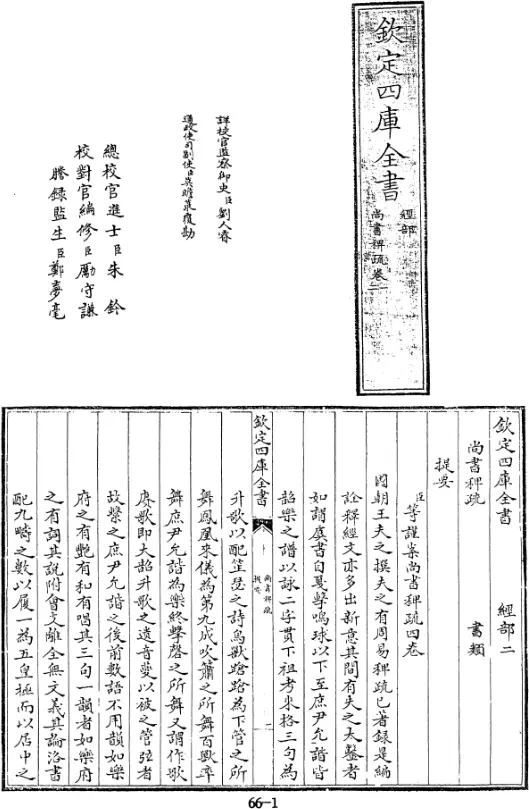 欽定四庫全書
經部
尚書稗疏卷一
二
詳校官監察御史臣劉人睿
通政使司副使臣莫瞻菉覆勘
總校官進士臣朱鈐
校對官編修臣厲守謙
謄錄監生臣鄭夢亳
欽定四庫全書 經部二
尚書稗疏 書類
提要
臣等謹案尚書稗疏四卷
國朝王夫之撰夫之有周易稗疏已著錄是編
詮釋經文亦多出新意其間有失之太鑿者
如謂虞書自戛擊鳴球以下至庶尹允諧皆
韶樂之譜以詠二字貫下祖考來格三句為
升歌以配笙瑟之詩鳥獸蹌蹌為下管之所
舞鳳凰來儀為第九成吹簫之所舞百獸率
舞庶尹允諧為樂終擊磬之所舞又謂作歌
賡歌即大韶升歌之遺音夔以被之管弦者
故繫之庶尹允諧之後前數語不用韻如樂
府之有艷有和有唱其三句一韻者如樂府
之有詞其說附會文離全無文義其論洛書
配九疇之數以履一為五皇極而以居中之
欽定四庫全書
尚書稗疏
提要
一
66-1